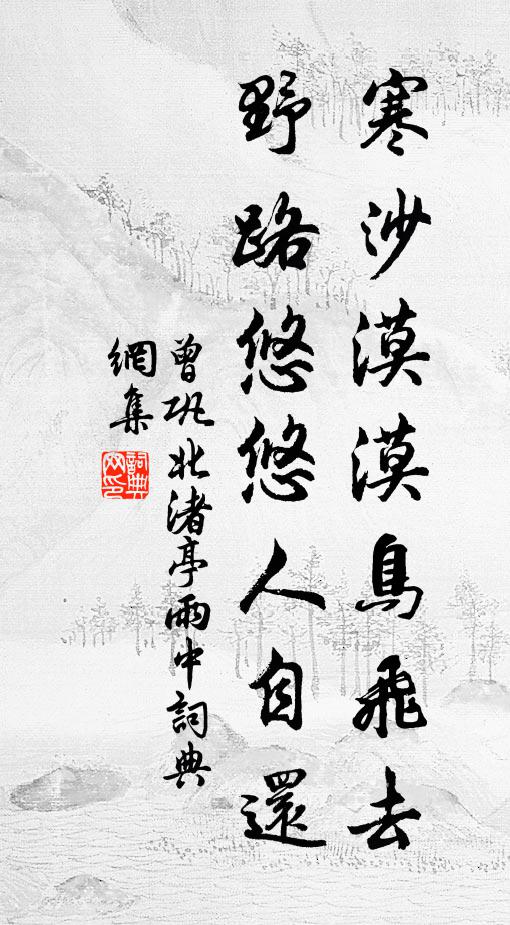 寒沙漠漠鳥飛去
野路悠悠人自還
曾巩北渚亭雨中詞典
網集
詞典
網印